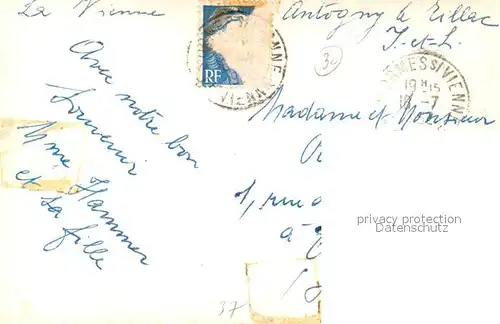 La Vienne
Antogny le Tillac
I.-et-L.
RF
VIENNE
ORMESSIVIENNE
19H15
18 -7
30
Avec notre bon
souvenir
Mme Hammer
et sa fille
Madame et Monsieur
1, rue
à
37
privacy protection
Datenschutz